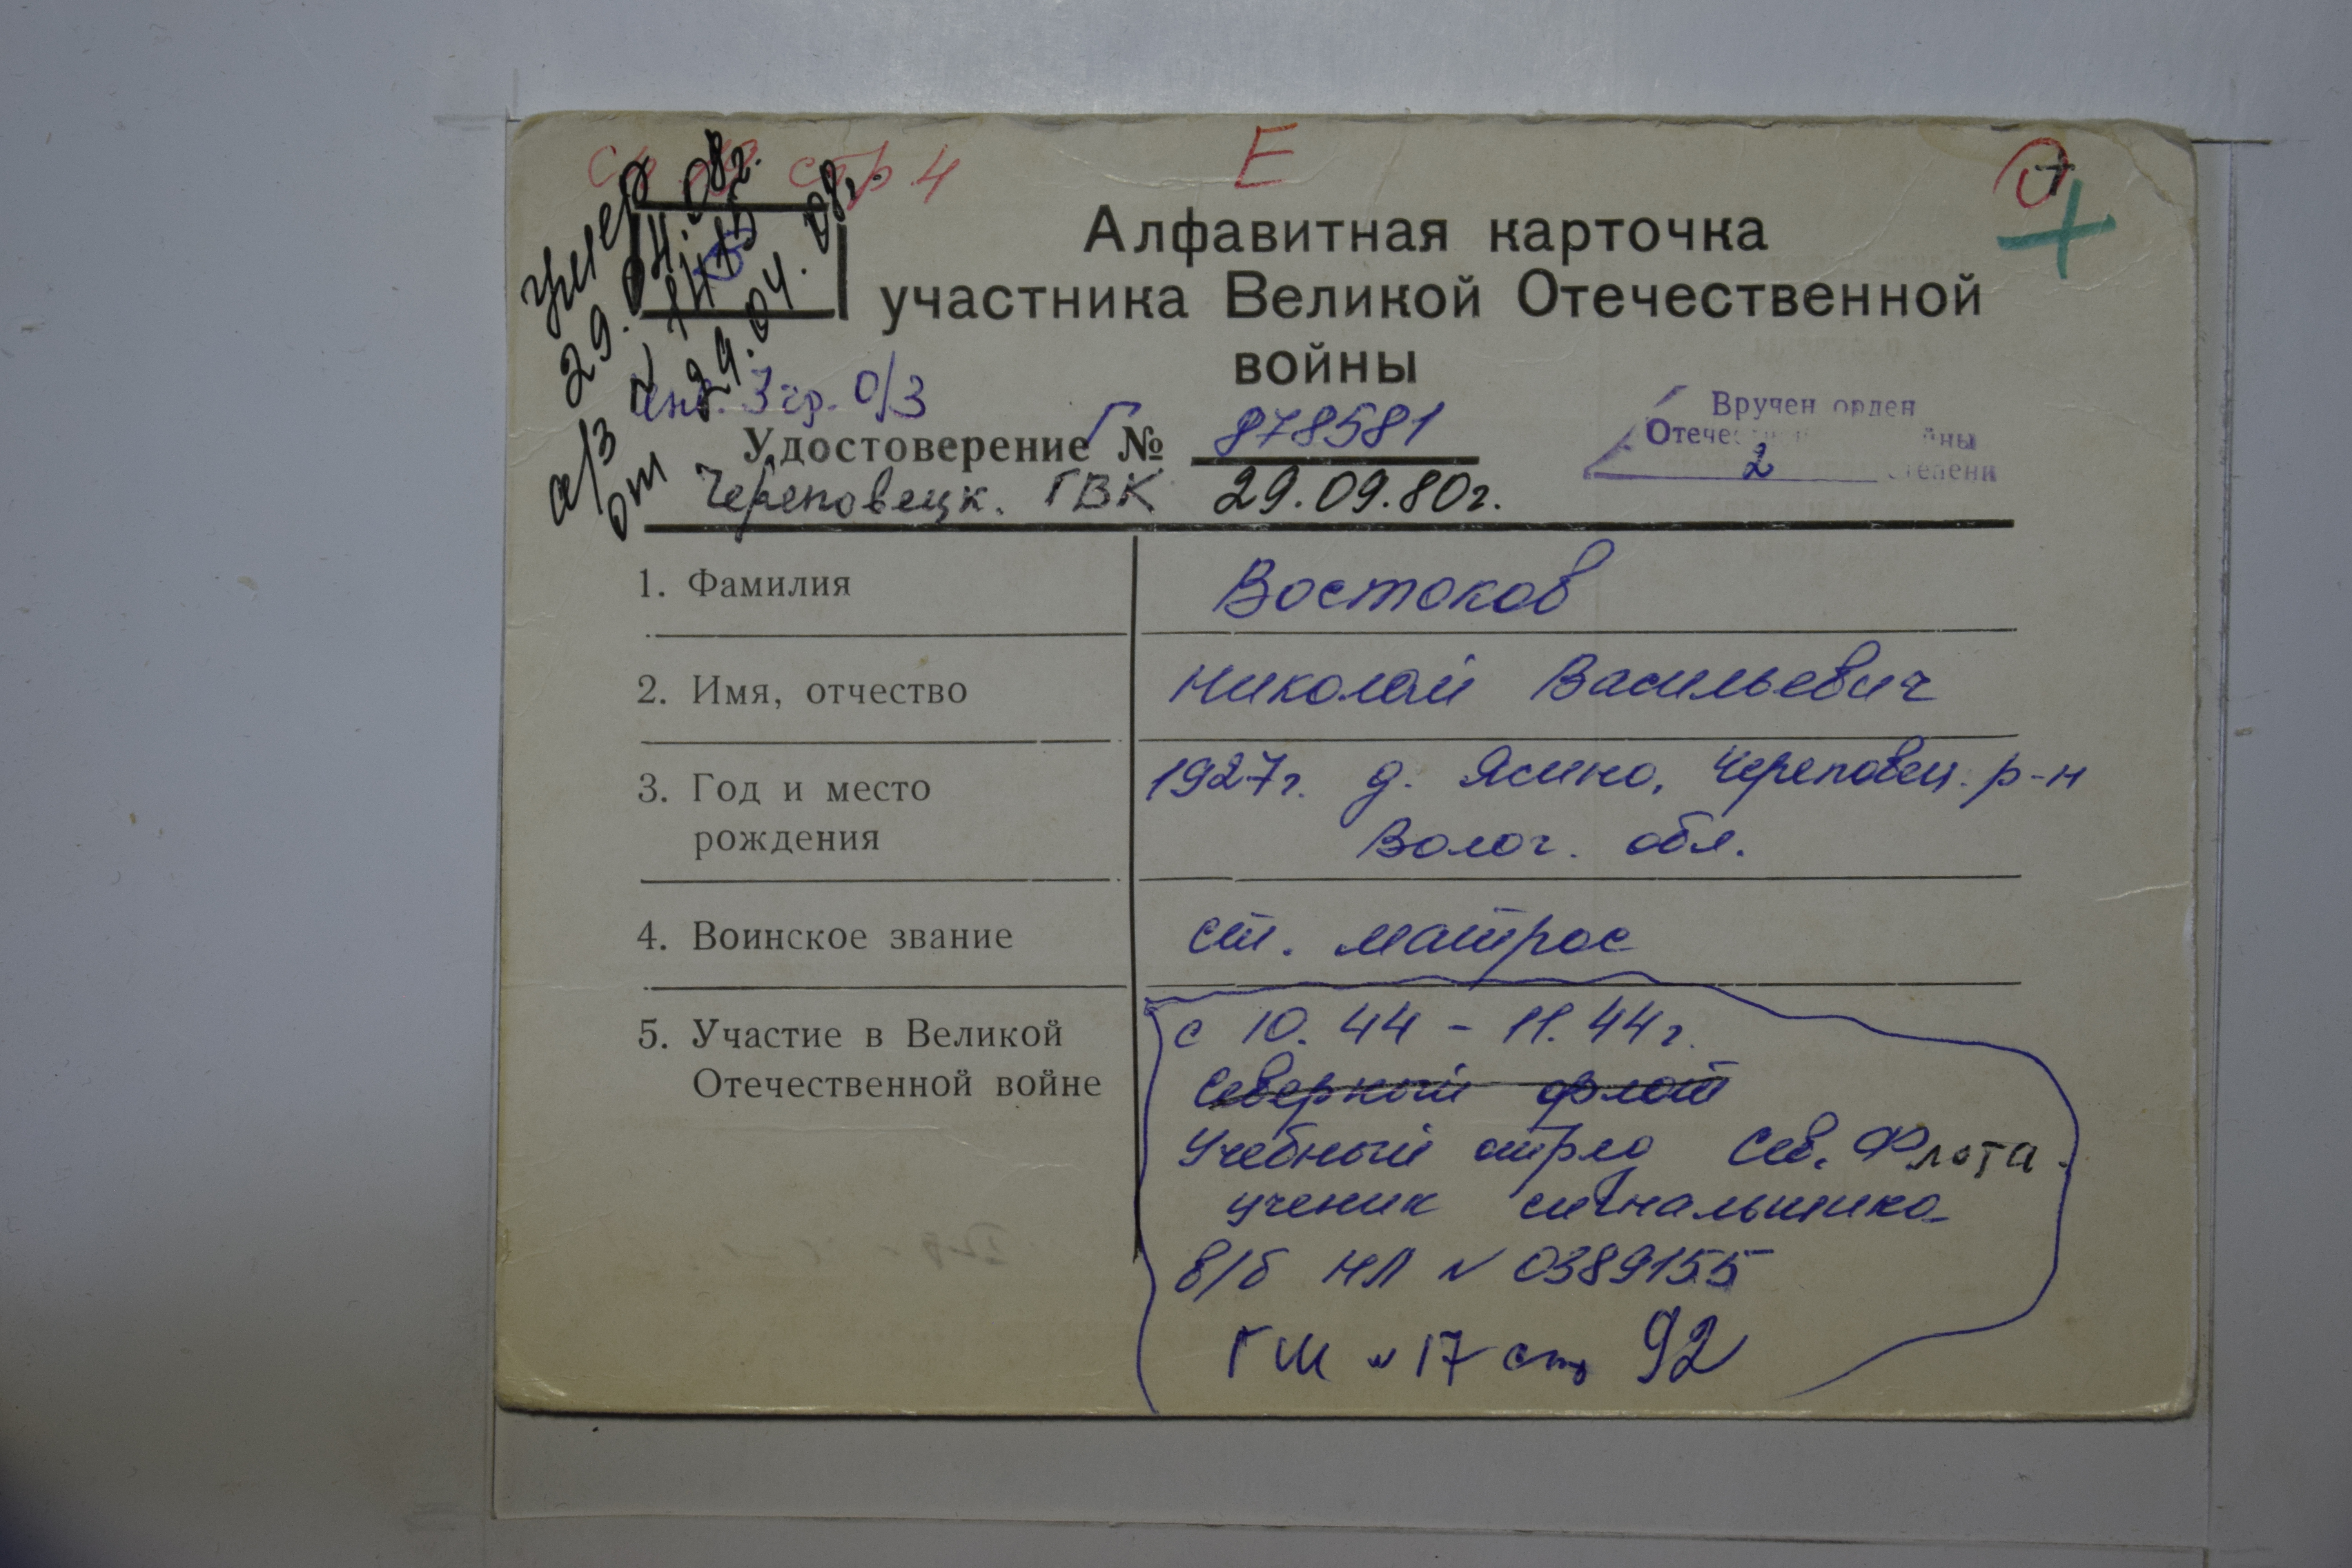 стр 4
Е
умер 29.04.08г.
а/з № 1415
от 29.04.08г.
Алфавитная карточка
участника Великой Отечественной
войны
инв. 3 гр. О/З
Удостоверение Г № 878581
Череповецк. ГВК 29.09.80г.
Вручен орден
Отечес ны
2 степени
1. Фамилия Востоков
2. Имя, отчество Николай Васильевич
3. Год и место 1927г. д. Ясино, Череповец. р-н
рождения Волог. обл.
4. Воинское звание ст. матрос
5. Участие в Великой с 10.44 - 11.44г.
Отечественной войне Северный флот
Учебный отряд Сев. Флота.
ученик сигнальщика
в/б НЛ № 0389155
ГМ № 17 стр 92